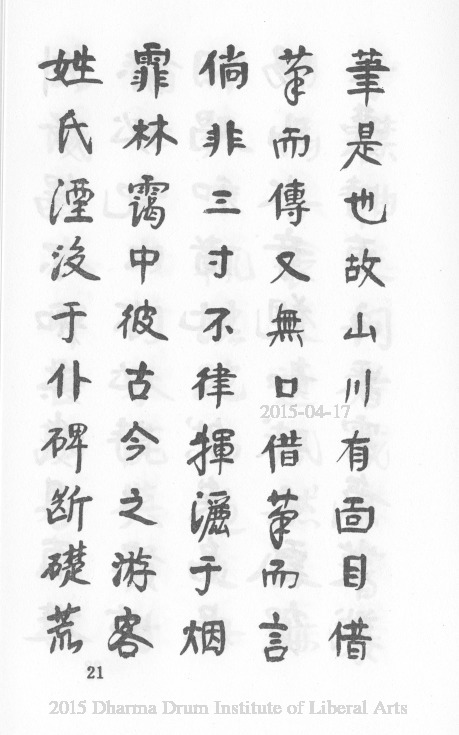 筆是也故山川有面目借
筆而傳又無口借筆而言
倘非三寸不律揮灑于烟
霏林靄中彼古今之游客
姓氏湮没于仆碑断礎荒
2015-04-17
21
2015 Dharma Drum Institute of Liberal Arts